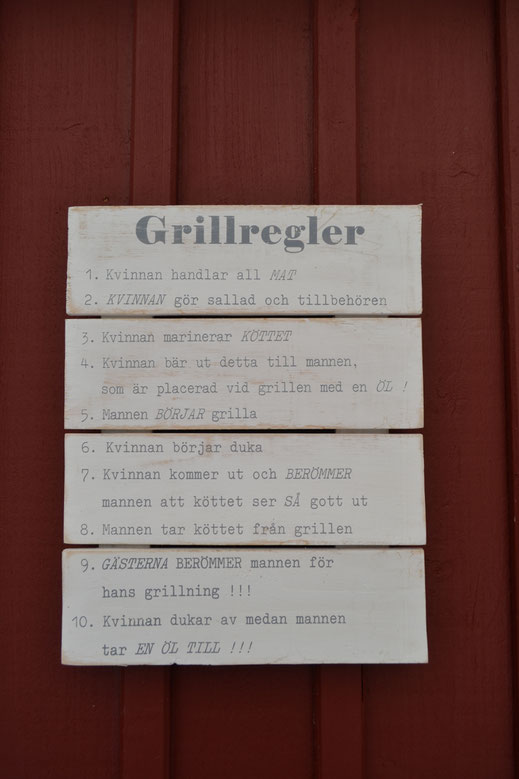 Grillregler
1. Kvinnan handlar all MAT
2. KVINNAN gör sallad och tillbehören
3. Kvinnan marinerar KÖTTET
4. Kvinnan bär ut detta till mannen,
som är placerad vid grillen med en ÖL !
5. Mannen BÖRJAR grilla
6. Kvinnan börjar duka
7. Kvinnan kommer ut och BERÖMMER
mannen att köttet ser SÅ gott ut
8. Mannen tar köttet från grillen
9. GÄSTERNA BERÖMMER mannen för
hans grillning !!!
10. Kvinnan dukar av medan mannen
tar EN ÖL TILL !!!